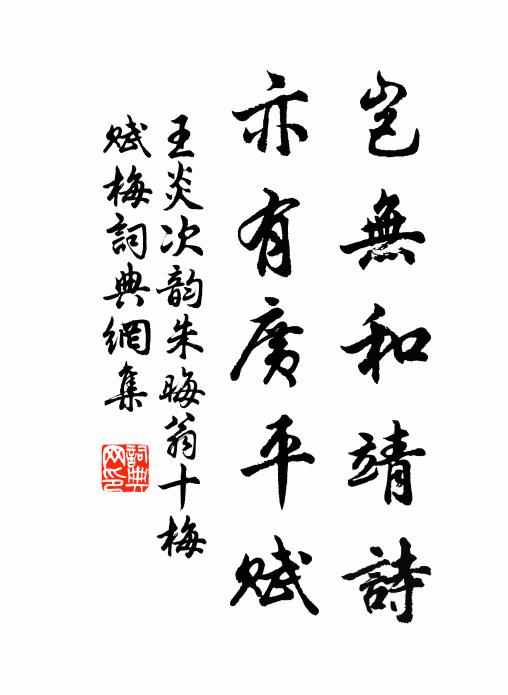 豈無和靖詩
亦有廣平賦
王炎次韵朱晦翁十梅
賦梅詞典網集
詞典网印